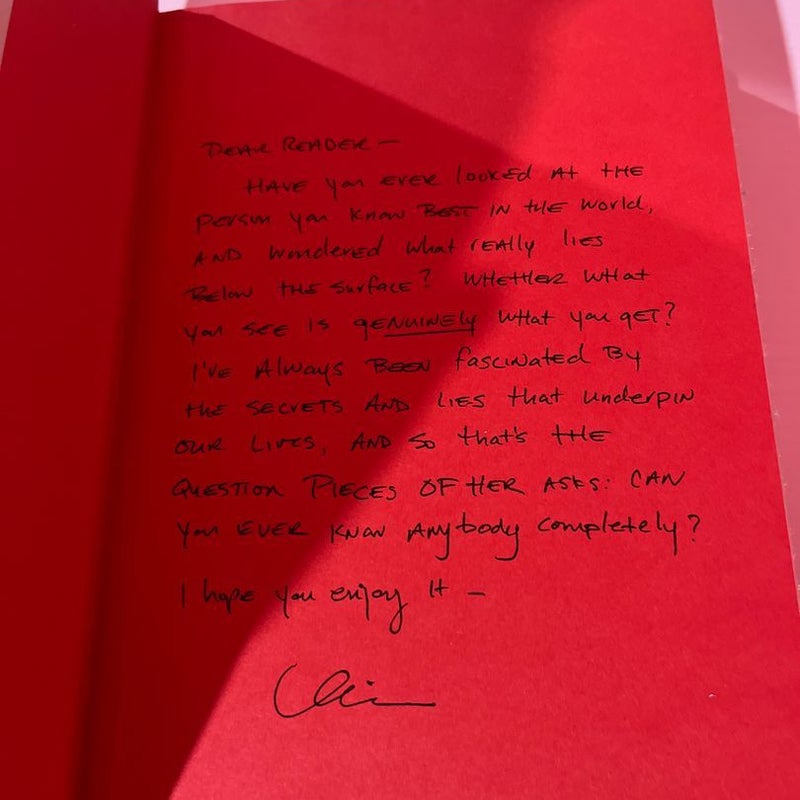 DEAR READER —
HAVE you EVER looked AT tHE
person you know BEST IN tHE world,
AND wondered what rEAlly lies
BELOW tHE surface? WHETHER WHAt
you SEE IS gENUINELy WHAt you gET?
I'VE Always BEEN fascinated By
tHE SECRETS AND LIES that underpin
OUR LIVES, AND so that's tHE
QUESTION PIECES OF HER ASKS: CAN
you EVER KNOW ANybody completely?
I hope you enjoy It —